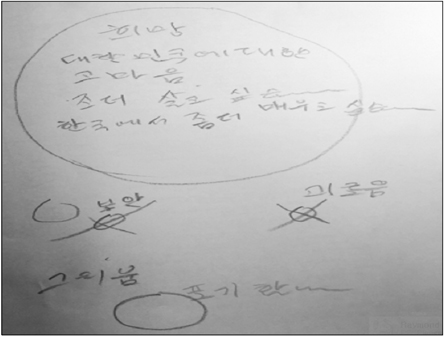 희망
대한민국에대한
고마움
좀더 살고 싶음
한국에서 좀더 배우고 싶음
불안
괴로움
그리움
포기